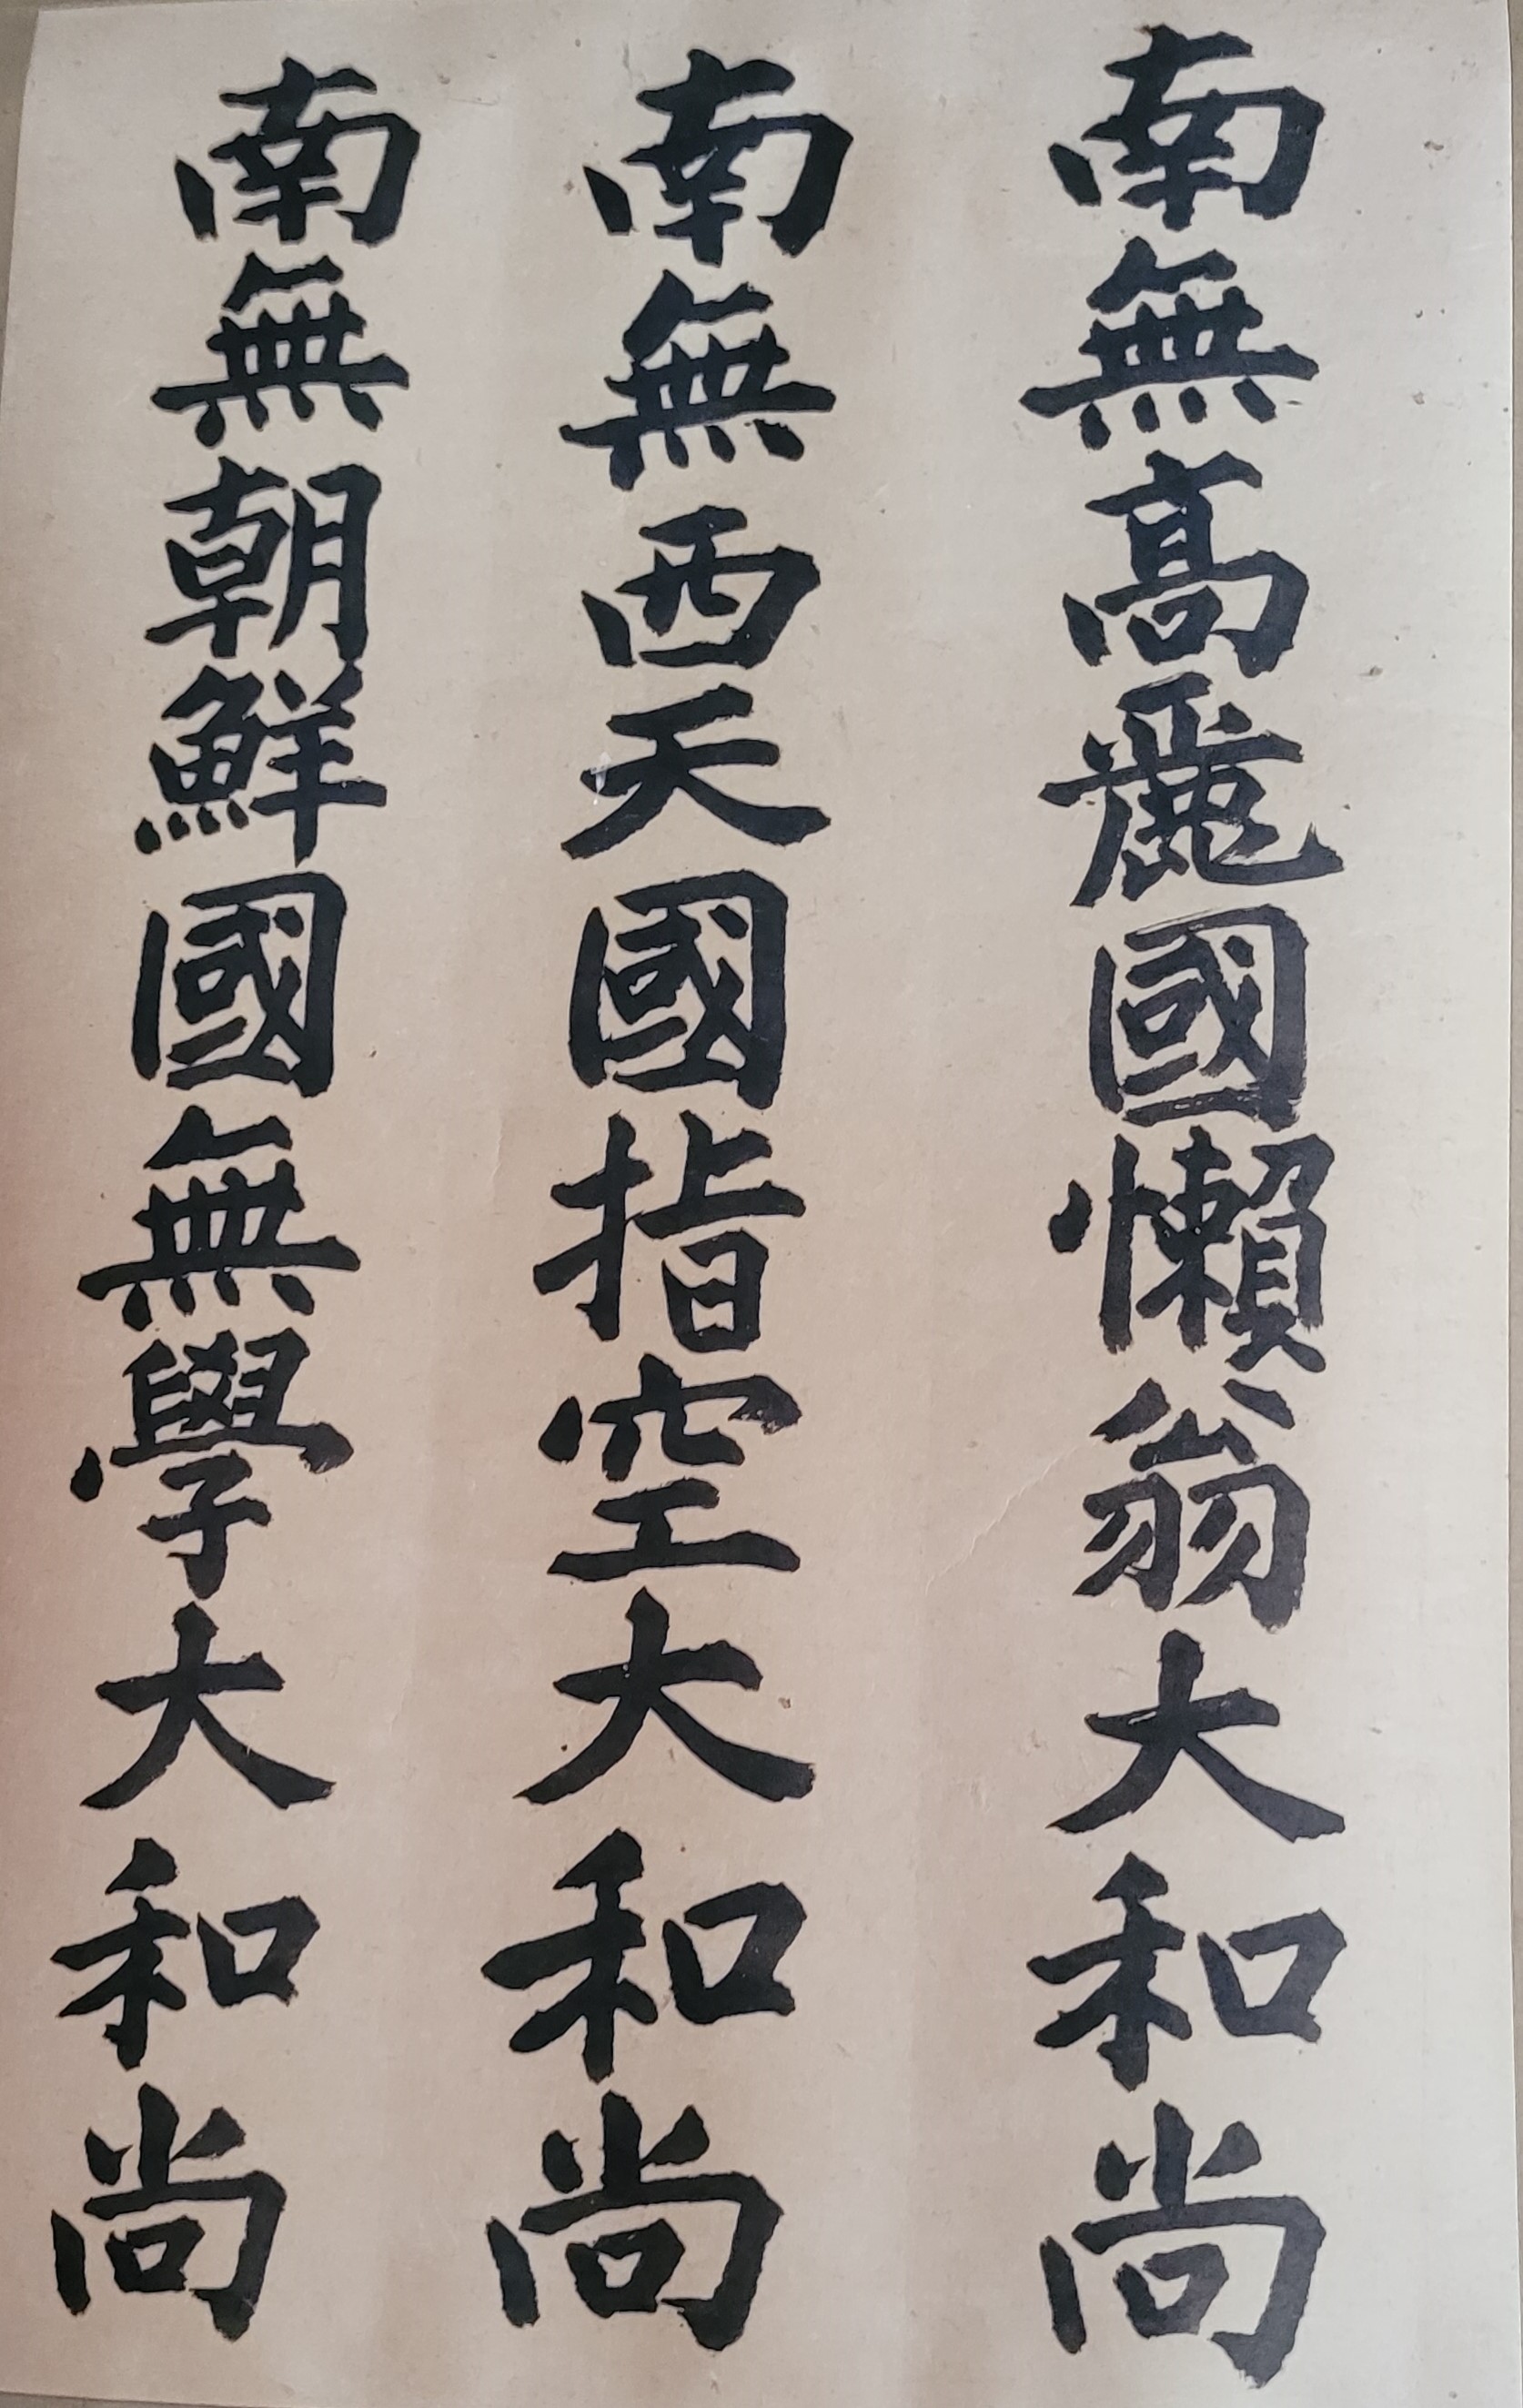 南無高麗國懶翁大和尚
南無西天國指空大和尚
南無朝鮮國無學大和尚